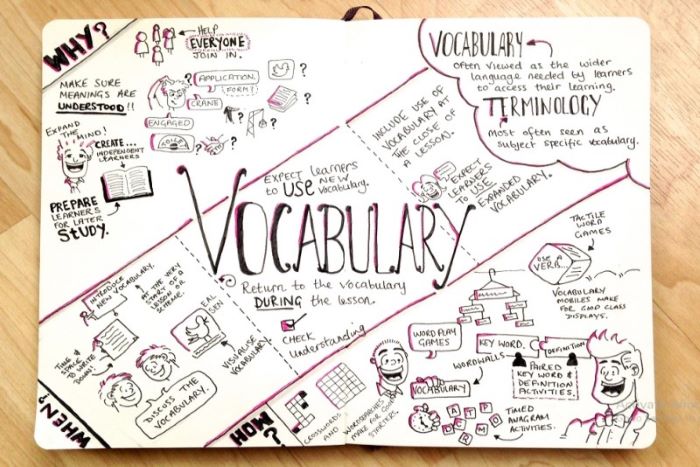 WHY?
HELP
EVERYONE
JOIN IN.
MAKE SURE
MEANINGS ARE
UNDERSTOOD!!
APPLICATION
FORM?
CRANE
ENGAGED
? ? ? ? ? ?
EXPAND
THE
MIND!
CREATE...
INDEPENDENT
LEARNERS
PREPARE
LEARNERS
FOR LATER
STUDY.
VOCABULARY
Often viewed as the wider
language needed by learners
to access their learning.
TERMINOLOGY
Most often seen as
subject specific vocabulary.
INCLUDE USE OF
VOCABULARY AT
THE CLOSE OF
A LESSON.
EXPECT
LEARNERS
TO USE
EXPANDED
VOCABULARY.
EXPECT learners
to USE NEW
vocabulary.
VOCABULARY
Return to the vocabulary
DURING the lesson.
CHECK
understanding
INTRODUCE
NEW VOCABULARY.
AT THE VERY
START OF A
LESSON OR
SCHEME.
TIME &
SPACE
TO WRITE
DOWN!
EAL
SEN
VISUALISE
VOCABULARY.
DISCUSS THE
VOCABULARY.
WHEN?
HOW?
CROSSWORDS
AND
WORDSEARCHES
MAKE FOR GOOD
STARTERS.
TACTILE
WORD
GAMES
USE A
VERB...
VOCABULARY
MOBILES MAKE
FOR GOOD CLASS
DISPLAYS.
WORD PLAY
GAMES
KEY WORD.
DEFINITION
WORDWALLS
PAIRED
KEY WORD &
DEFINITION
ACTIVITIES.
VOCABULARY
TIMED
ANAGRAM
ACTIVITIES.